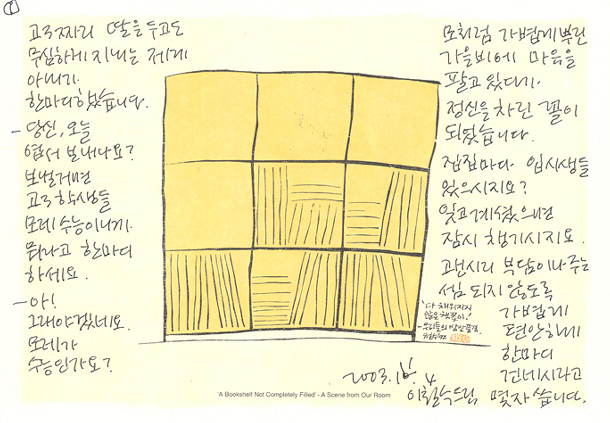 고3짜리 딸을 두고도
무심하게 지내는 제게
아내가
한마디 했습니다.
- 당신, 오늘
엽서 보내나요?
보낼거면
고3 학생들
모레 수능이니까
뭐라고 한마디
하세요.
- 아!
그래야겠네요.
모레가
수능인가요?
모처럼 가볍게 뿌린
가을비에 마음을
팔고 있다가
정신을 차린 꼴이
되었습니다.
집집마다 입시생들
있으시지요?
잊고 계셨으면
잠시 챙기시지요.
괜시리 부담이나 주는
셈 되지 않도록
가볍게
편안하게
한마디
건네시라고
몇자 씁니다.
'다 채워지지
않은 책꽂이'
- 우리들의 방안풍경
2003. 4
이철수드림
'A Bookshelf Not Completely Filled' - A Scene from Our Room